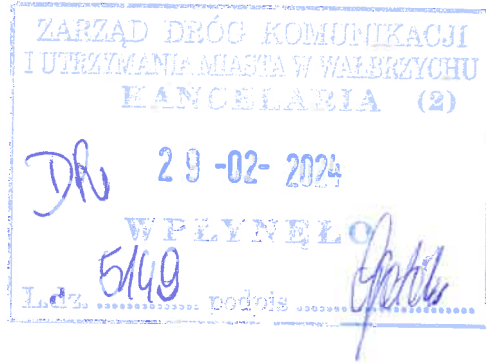 ZARZĄD DRÓG KOMUNIKACJI
I UTRZYMANIA MIASTA W WAŁBRZYCHU
KANCELARIA (2)
29 -02- 2024
WPŁYNĘŁO
L.dz. 5149 podpis